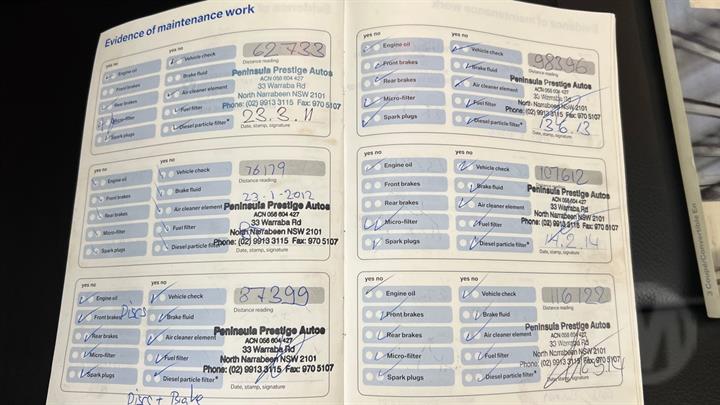 Evidence of maintenance work
yes no
yes no
62733
Distance reading
Engine oil
Vehicle check
Front brakes
Brake fluid
Rear brakes
Air cleaner element
Micro-filter
Fuel filter
Spark plugs
Diesel particle filter*
Peninsula Prestige Autos
ACN 058 604 427
33 Warraba Rd
North Narrabeen NSW 2101
Phone: (02) 9913 3115 Fax: 970 5107
23.3.11
Date, stamp, signature
yes no
yes no
76179
Distance reading
Engine oil
Vehicle check
Front brakes
Brake fluid
Rear brakes
Air cleaner element
Micro-filter
Fuel filter
Spark plugs
Diesel particle filter*
23-1-2012
Peninsula Prestige Autos
ACN 058 604 427
33 Warraba Rd
North Narrabeen NSW 2101
Phone: (02) 9913 3115 Fax: 970 5107
Date, stamp, signature
yes no
yes no
87399
Distance reading
Engine oil
Vehicle check
Front brakes Discs
Brake fluid
Rear brakes
Air cleaner element
Micro-filter
Fuel filter
Spark plugs
Diesel particle filter*
Peninsula Prestige Autos
ACN 058 604 427
33 Warraba Rd
North Narrabeen NSW 2101
Phone: (02) 9913 3115 Fax: 970 5107
Date, stamp, signature
Discs + Brake
yes no
yes no
98396
Distance reading
Engine oil
Vehicle check
Front brakes
Brake fluid
Rear brakes
Air cleaner element
Micro-filter
Fuel filter
Spark plugs
Diesel particle filter*
Peninsula Prestige Autos
ACN 058 604 427
33 Warraba Rd
North Narrabeen NSW 2101
Phone: (02) 9913 3115 Fax: 970 5107
13.6.13
Date, stamp, signature
yes no
yes no
107612
Distance reading
Engine oil
Vehicle check
Front brakes
Brake fluid
Rear brakes
Air cleaner element
Micro-filter
Fuel filter
Spark plugs
Diesel particle filter*
Peninsula Prestige Autos
ACN 058 604 427
33 Warraba Rd
North Narrabeen NSW 2101
Phone: (02) 9913 3115 Fax: 970 5107
14.2.14
Date, stamp, signature
yes no
yes no
116122
Distance reading
Engine oil
Vehicle check
Front brakes
Brake fluid
Rear brakes
Air cleaner element
Micro-filter
Fuel filter
Spark plugs
Diesel particle filter*
Peninsula Prestige Autos
ACN 058 604 427
33 Warraba Rd
North Narrabeen NSW 2101
Phone: (02) 9913 3115 Fax: 970 5107
Date, stamp, signature